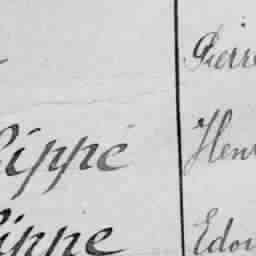 Pierre
lippe Hen
lippe Edou